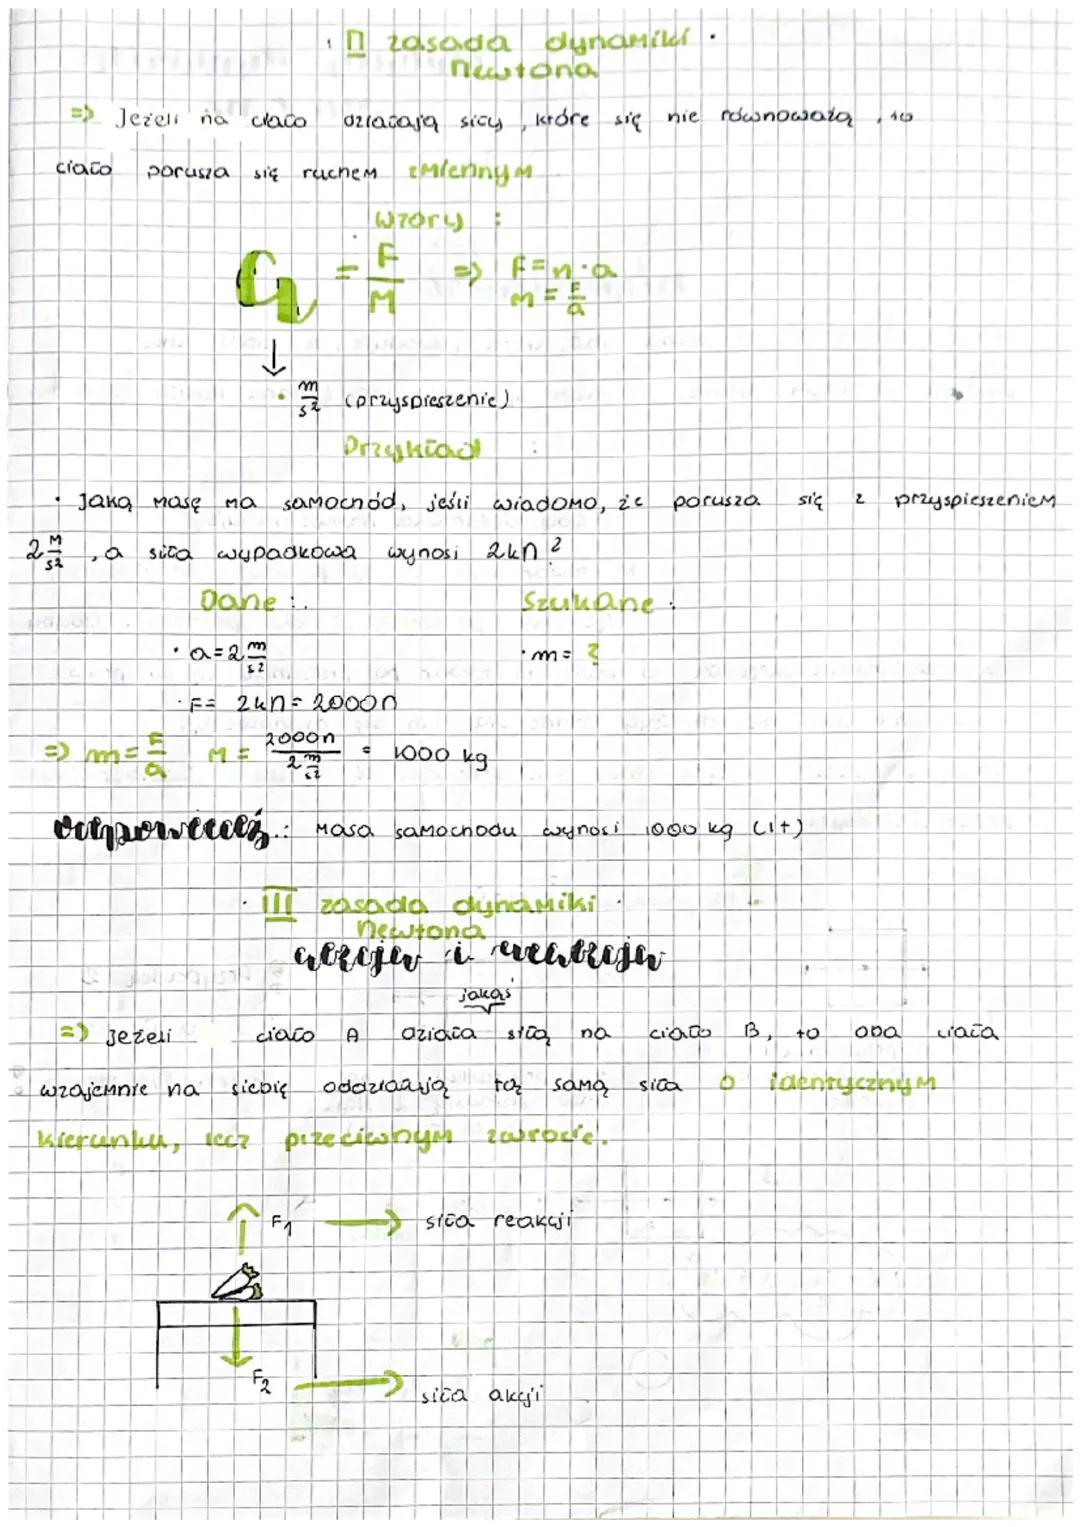 · II zasada dynamiki ·
Newtona
=> Jeżeli na ciało działają siły, które się nie równoważą, to
ciało porusza się ruchem zmiennym
wzory :
a = F/M => F=m·a
m = F/a
↓
· m/s² (przyspieszenie)
Przykład :
· Jaką masę ma samochód, jeśli wiadomo, że porusza się z przyspieszeniem
2 m/s², a siła wypadkowa wynosi 2kN?
Dane : Szukane :
· a=2 m/s² · m= ?
· F= 2kN= 2000N
=> m= F/a M = 2000N / 2 m/s² = 1000 kg
odpowiedź.: Masa samochodu wynosi 1000 kg (1t)
· III zasada dynamiki ·
Newtona
akcja i reakcja
jakąś
=> Jeżeli ciało A działa siłą na ciało B, to oba ciała
wzajemnie na siebie oddziałują tą samą siłą o identycznym
kierunku, lecz przeciwnym zwrocie.
F1 → siła reakcji
F2 → siła akcji